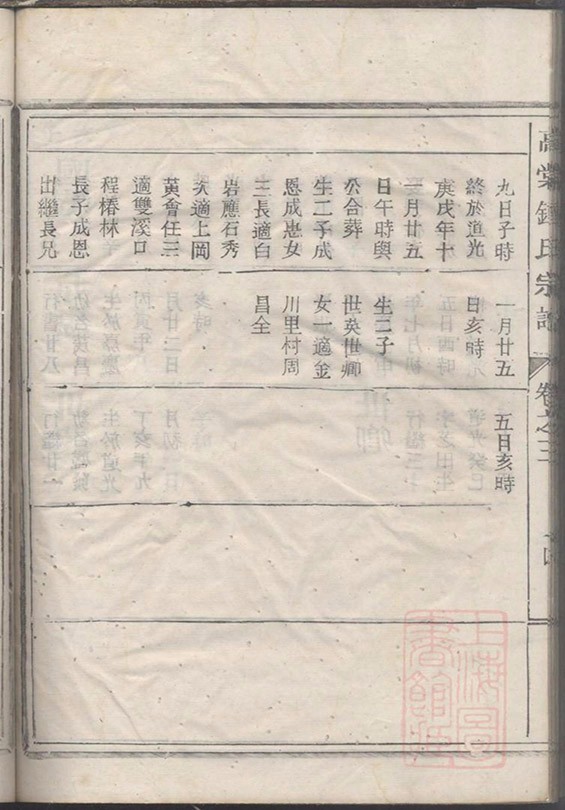 高棠鍾氏宗譜
卷之三
九日子時
終於道光
庚戌年十
一月廿五
日午時與
公合葬
生二子成
恩成惠女
三長適白
岩應石秀
次適上岡
黃會任三
適雙溪口
程椿林
長子成恩
出繼長兄
一月廿五
日亥時
生二子
世英世卿
女一適金
川里村周
昌全
五日亥時
上海圖書館藏